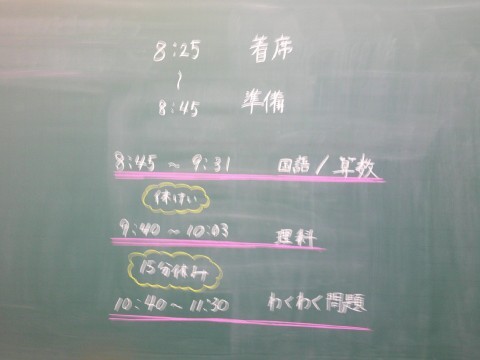 8:25 着席
~
8:45 準備
8:45 ~ 9:31 国語/算数
休けい
9:40 ~ 10:03 理科
15分休み
10:40 ~ 11:30 わくわく問題